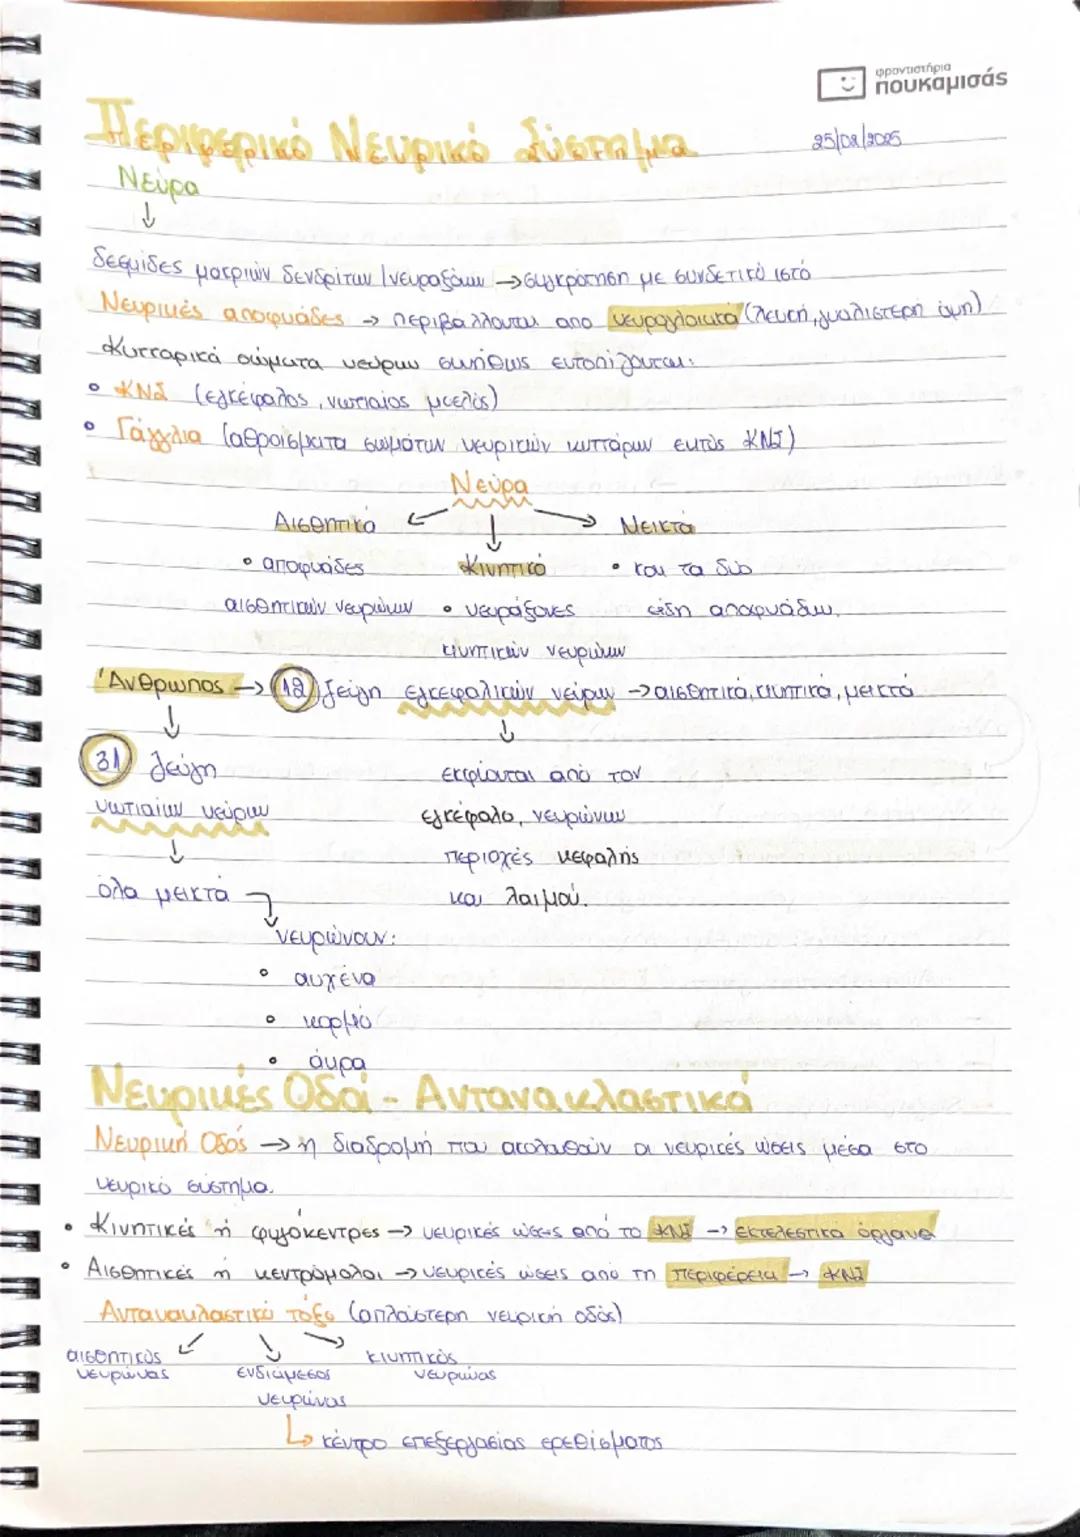 φροντιστήρια
πουκαμισάς
Περιφερικό Νευρικό Σύστημα
25/02/2025
Νεύρα
↓
δεσμίδες μακριών δενδριτών / νευραξόνων → συγκρότηση με συνδετικό ιστό
Νευρικές αποφυάδες → περιβάλλονται από νευρογλοιακά (λευκή, γυαλιστερή όψη)
Κυτταρικά σώματα νεύρων συνήθως εντοπίζονται:
• ΚΝΣ (εγκέφαλος, νωτιαίος μυελός)
• Γάγγλια (αθροίσματα σωμάτων νευρικών κυττάρων εκτός ΚΝΣ)
Νεύρα
Αισθητικά ← ↓ → Μεικτά
• αποφυάδες Κινητικά • και τα δύο
αισθητικών νευρώνων • νευράξονες είδη αποφυάδων.
κινητικών νευρώνων
Άνθρωπος → 12 ζεύγη εγκεφαλικών νεύρων → αισθητικά, κινητικά, μεικτά
↓ ↓
31 ζεύγη εκφύονται από τον
νωτιαίων νεύρων εγκέφαλο, νευρώνουν
↓ περιοχές κεφαλής
όλα μεικτά και λαιμού.
νευρώνουν:
• αυχένα
• κορμό
• άκρα
Νευρικές Οδοί - Αντανακλαστικά
Νευρική Οδός → η διαδρομή που ακολουθούν οι νευρικές ώσεις μέσα στο
νευρικό σύστημα.
• Κινητικές ή φυγόκεντρες → νευρικές ώσεις από το ΚΝΣ → εκτελεστικά όργανα
• Αισθητικές ή κεντρομόλοι → νευρικές ώσεις από τη περιφέρεια → ΚΝΣ
Αντανακλαστικό τόξο (απλούστερη νευρική οδός)
αισθητικός ενδιάμεσος κινητικός
νευρώνας νευρώνας νευρώνας
κέντρο επεξεργασίας ερεθίσματος